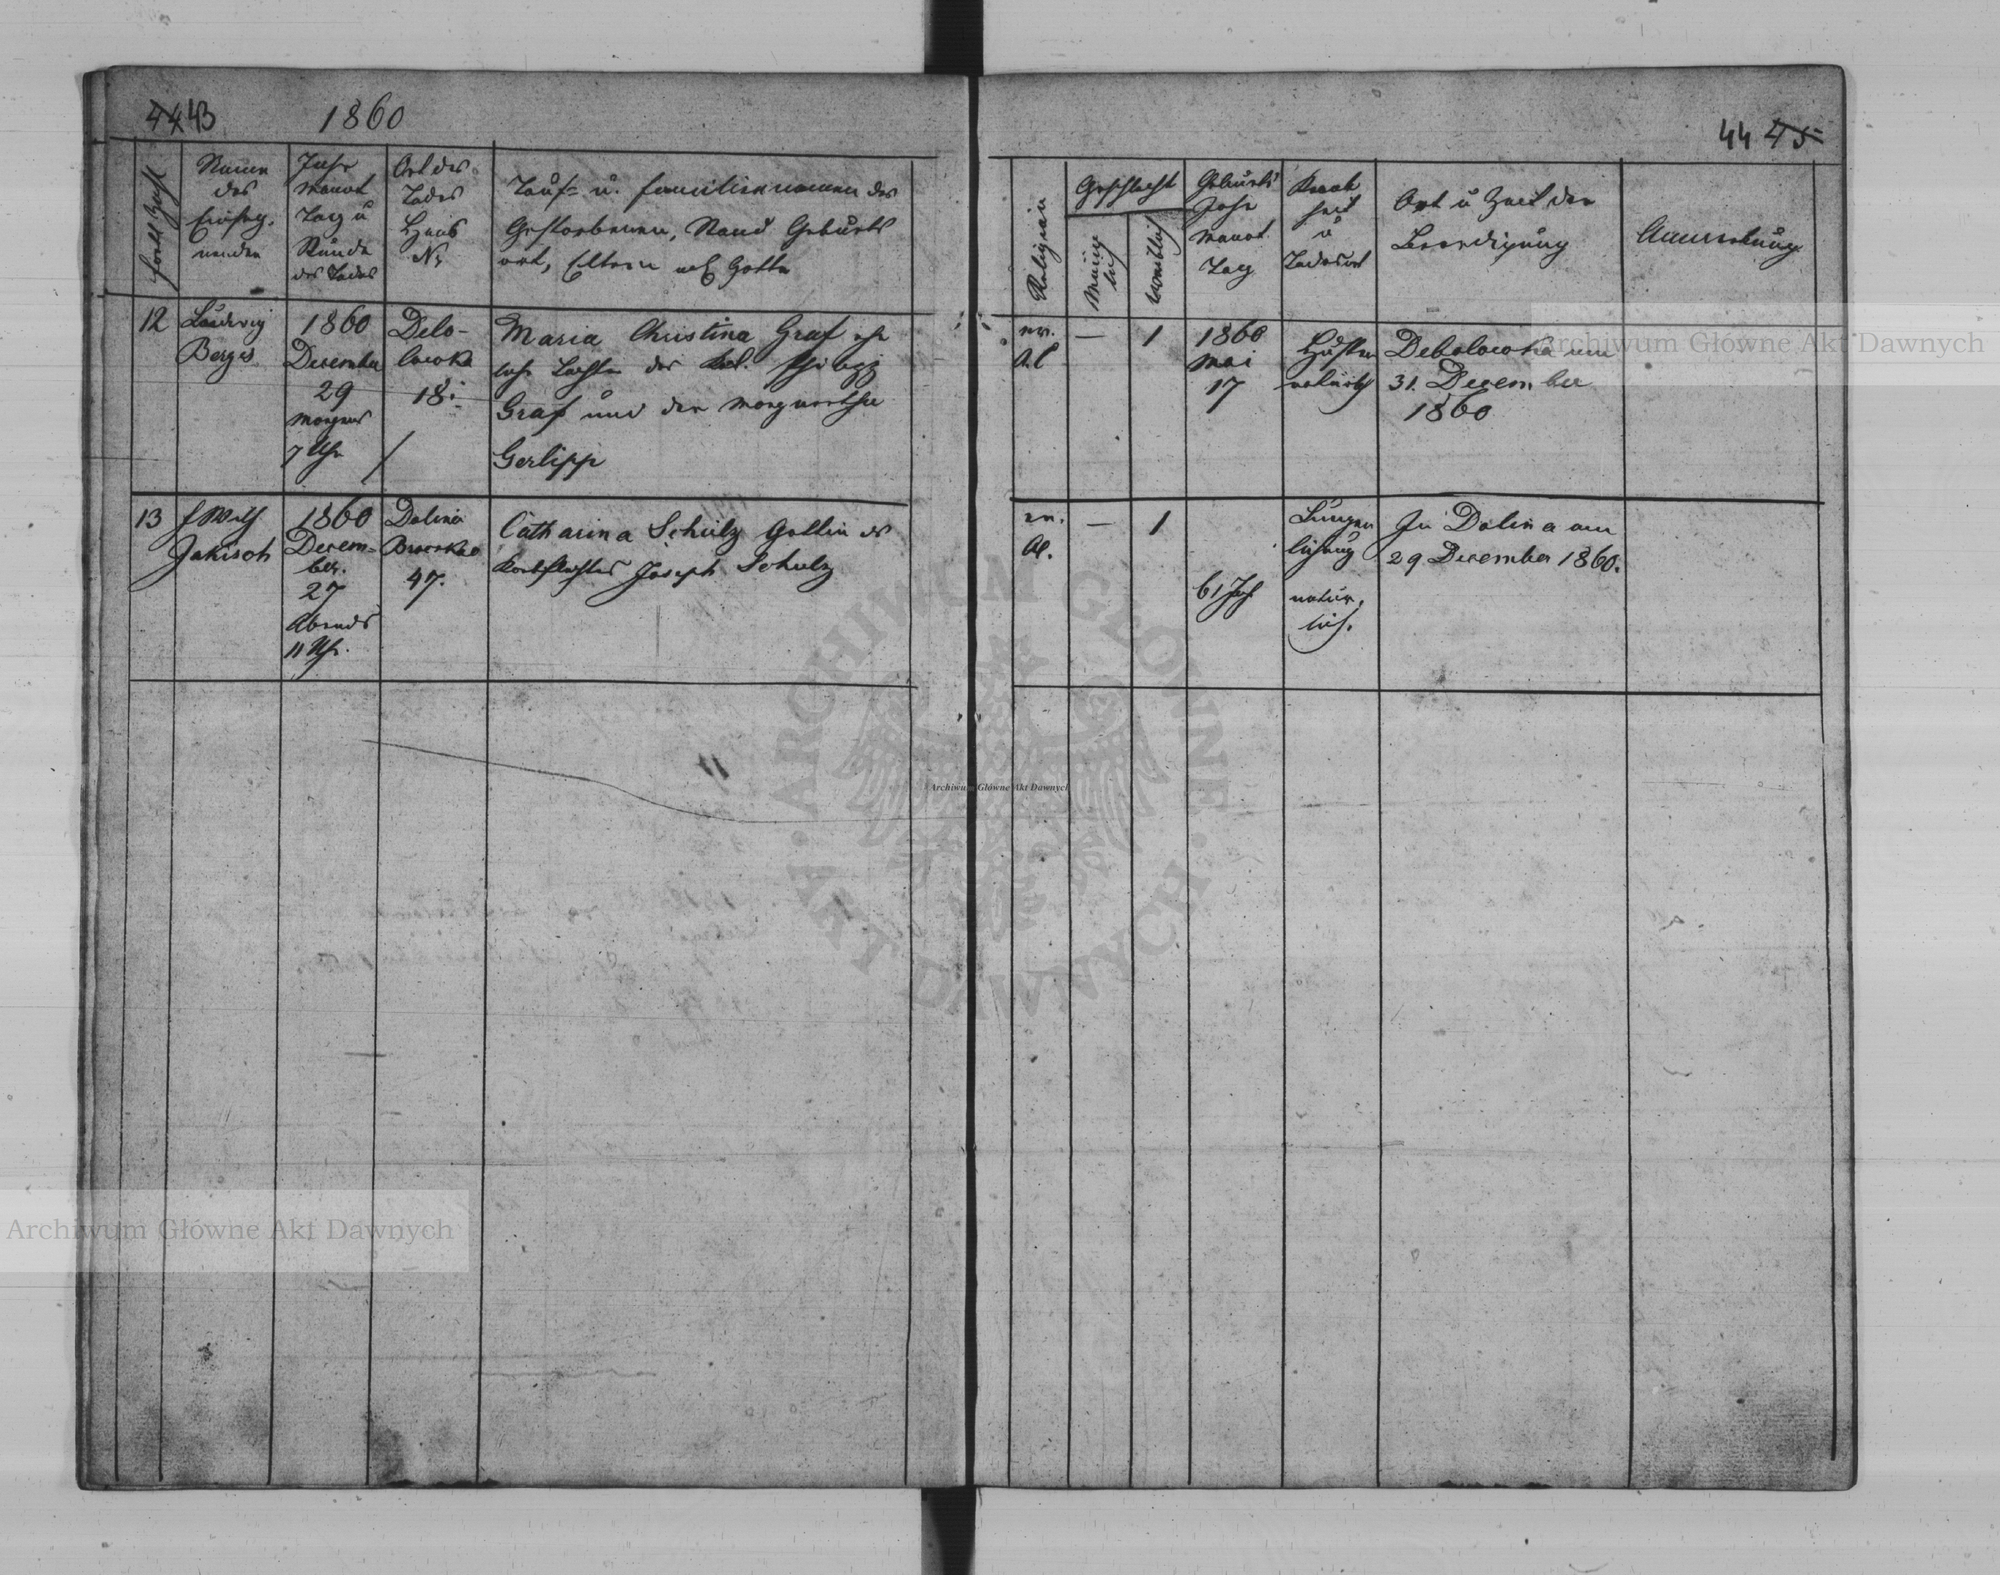 44 43
1860
Fortl. Zahl
Namen
des
Einseg-
nenden
Jahr
Monat
Tag u
Stunde
des Todes
Ort des
Todes
Haus
Nr
Tauf- u. Familiennamen des
Gestorbenen, Stand Geburts
ort, Eltern od. Gatte
12
Ludwig
Berges
1860
December
29
Morgens
7 Uhr
Debo-
lowka
18.
Maria Christina Graf ehe
liche Tochter des Philipp
Graf und der Margarethe
Gerlipp
13
Jakisch
1860
Decem-
ber.
27
Abends
11 Uhr.
Dolina
47.
Catharina Schulz Gattin des
Korbflechters Joseph Schulz
44 45
Religion
Geschlecht
Männ
lich
weiblich
Geburts
Jahr
Monat
Tag
Krank
heit
u
Todesart
Ort u Zeit der
Beerdigung
Anmerkung
ev.
A.C
—
1
1860
Mai
17
Husten
natürlich
Debolowka am
31. December
1860
ev.
AC.
—
1
61 Jah
Lungen
lähmung
natür.
lich.
In Dolina am
29 December 1860.
Archiwum Główne Akt Dawnych
Archiwum Główne Akt Dawnych
Archiwum Główne Akt Dawnych
ARCHIWUM GŁÓWNE · AKT DAWNYCH ·